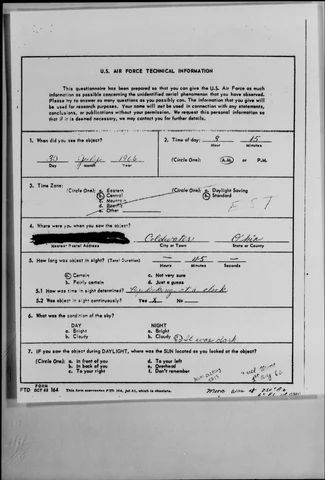 U.S. AIR FORCE TECHNICAL INFORMATION
This questionnaire has been prepared so that you can give the U.S. Air Force as much
information as possible concerning the unidentified aerial phenomenon that you have observed.
Please try to answer as many questions as you possibly can. The information that you give will
be used for research purposes. Your name will not be used in connection with any statements,
conclusions, or publications without your permission. We request this personal information so
that if it is deemed necessary, we may contact you for further details.
1. When did you see the object?
30 July 1966
Day Month Year
2. Time of day: 9 15
Hour Minutes
(Circle One): A.M. or P.M.
3. Time Zone:
(Circle One): a. Eastern
b. Central
c. Mountain
d. Pacific
e. Other
(Circle One): a. Daylight Saving
b. Standard
EST
4. Where were you when you saw the object?
Coldwater Ohio
Nearest Postal Address City or Town State or County
5. How long was object in sight? (Total Duration) 45
Hours Minutes Seconds
a. Certain c. Not very sure
b. Fairly certain d. Just a guess
5.1 How was time in sight determined? By looking at a clock
5.2 Was object in sight continuously? Yes X No
6. What was the condition of the sky?
DAY NIGHT
a. Bright a. Bright
b. Cloudy b. Cloudy It was dark
7. IF you saw the object during DAYLIGHT, where was the SUN located as you looked at the object?
(Circle One): a. In front of you d. To your left
b. In back of you e. Overhead
c. To your right f. Don't remember
FORM
FTD OCT 62 164 This form supersedes FTD 164, Jul 61, which is obsolete.
Moon